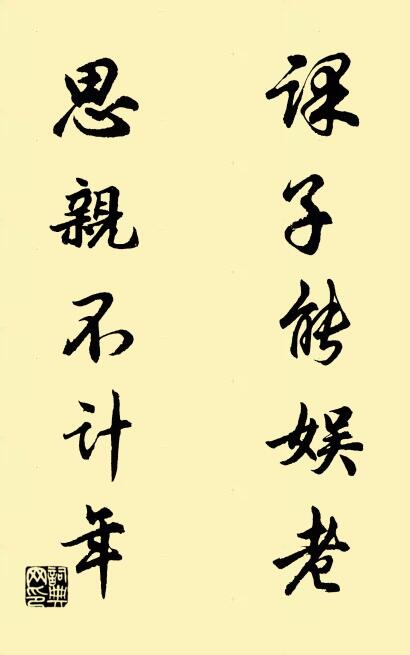 課子能娱老
思親不计年
詞典网印